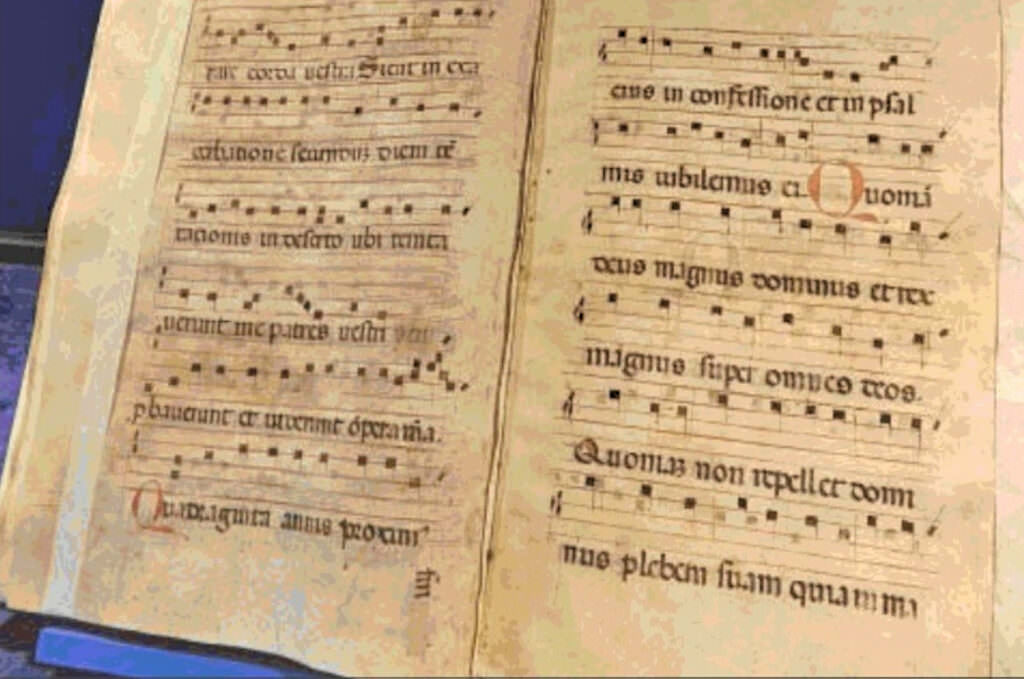 rare corda vestra Sicut in exa
cerbatione secundum diem te
tationis in deserto ubi tenta
uerunt me patres vestri
probauerunt et uiderunt opera mea.
Quadraginta annis proxim
fui
eius in confessione et in psal
mis iubilemus ei Quoniam
deus magnus dominus et rex
magnus super omnes deos.
Quoniam non repellet domi
nus plebem suam quia in ma